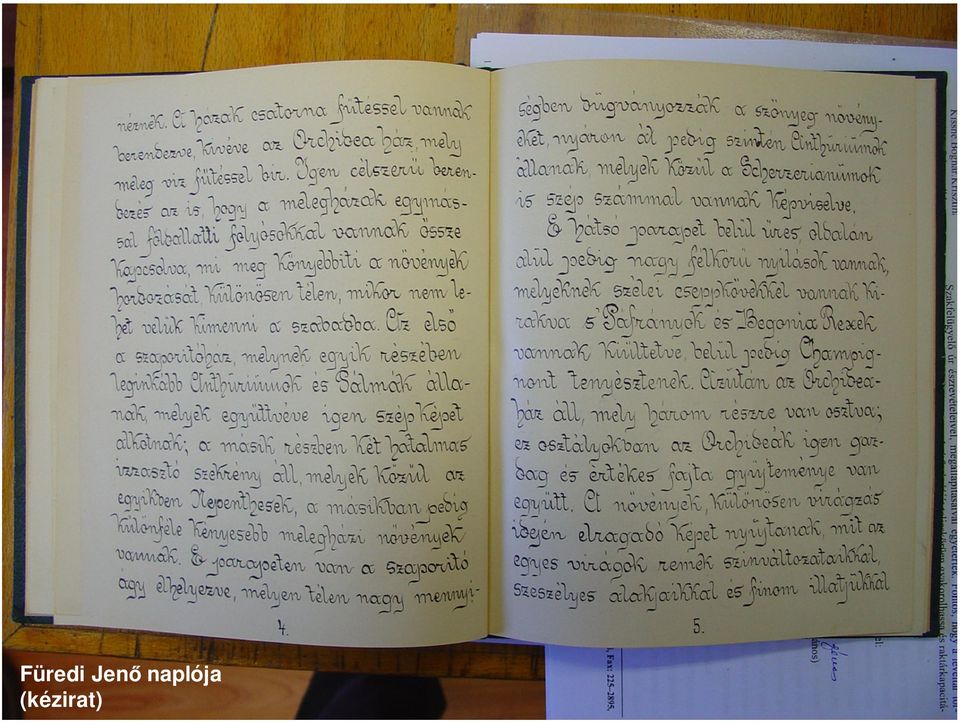 néznek. A házak csatorna fűtéssel vannak
berendezve, kivéve az Orchidea ház, mely
meleg víz fűtéssel bír. Igen célszerű beren-
dezés az is, hogy a melegházak egymás-
sal földallatti folyosokkal vannak össze
kapcsolva, mi meg könyebbiti a növények
hordozását, különösen télen, mikor nem le-
het velük kimenni a szabadba. Az első
a szaporitóház, melynek egyik részében
leginkább Anthuriumok és Pálmák álla-
nak, melyek együttvéve igen szép képet
alkotnak; a másik részben két hatalmas
izzasztó szekrény áll, melyek közül az
egyikben Nepenthesek, a másikban pedig
különféle kényesebb melegházi növények
vannak. E parapeten van a szaporitó
ágy elhelyezve, melyen télen nagy mennyi-
4.
ségben dugványozzák a szőnyeg növény-
eket, nyáron át pedig szintén Anthuriumok
állanak, melyek közül a Scherzerianumok
is szép számmal vannak képviselve.
E hátsó parapet belül üres, oldalán
alúl pedig nagy félkörü nyilások vannak,
melyeknek szélei cseppkövekkel vannak ki-
rakva s' Páfrányok és Begonia Rexek
vannak kiültetve, belül pedig Champig-
nont tenyésztenek. Azután az Orchidea-
ház áll, mely három részre van osztva;
ez osztályokban az Orchideák igen gaz-
dag és értékes fajta gyüjteménye van
együtt. A növények, különösen virágzás
idején elragadó képet nyújtanak, mit az
egyes virágok remek szinváltozataikkal,
szeszélyes alakjaikkal és finom illatjukkal
5.
Szakfelügyelő úr észrevételeivel, megállapításaival egyetértek. Fontos, hogy a levéltár
és raktárkapacitá-
Fax: 225-2895,
Füredi Jenő naplója
(kézirat)